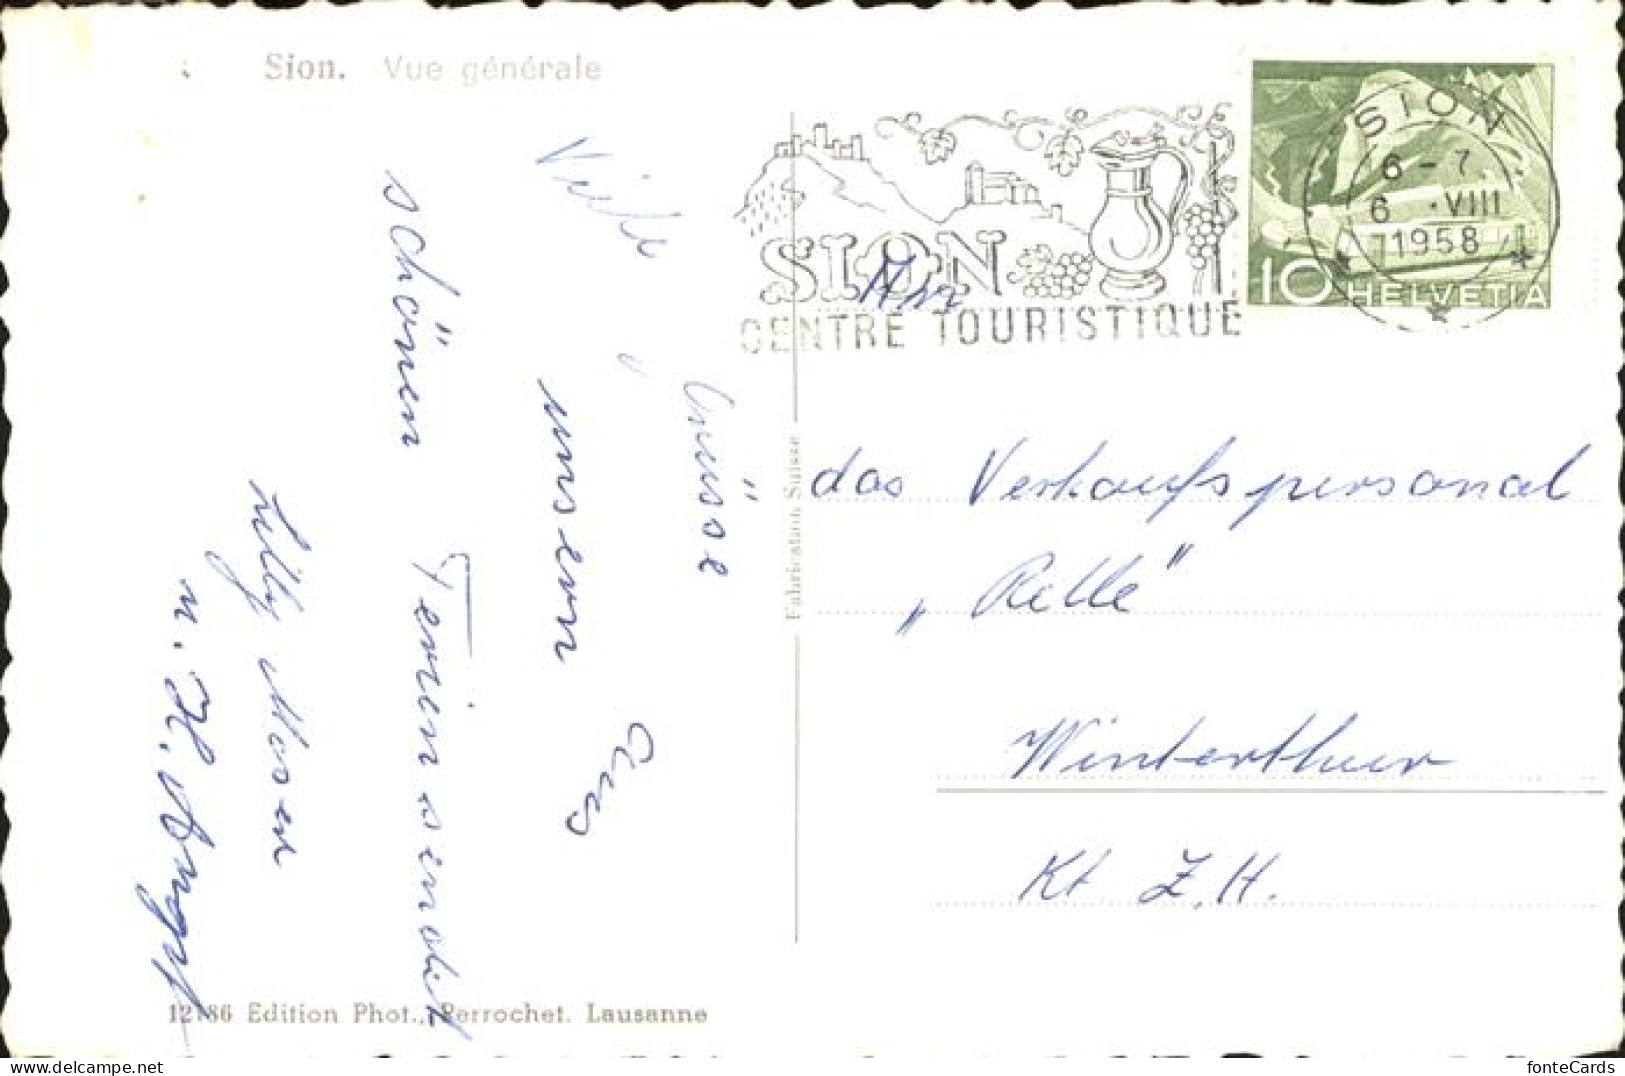 Sion. Vue générale
SION
CENTRE TOURISTIQUE
SION
6-7
6 ·VIII
1958
10 HELVETIA
Viele
Grüsse
aus
unserem
schönen
Ferienaufenthalt
Lilly Moser
u. H.
An
das Verkaufspersonal
„Rellé"
Winterthur
Kt Z.H.
Fabrication Suisse
12786 Edition Phot., Perrochet. Lausanne
fonteCards